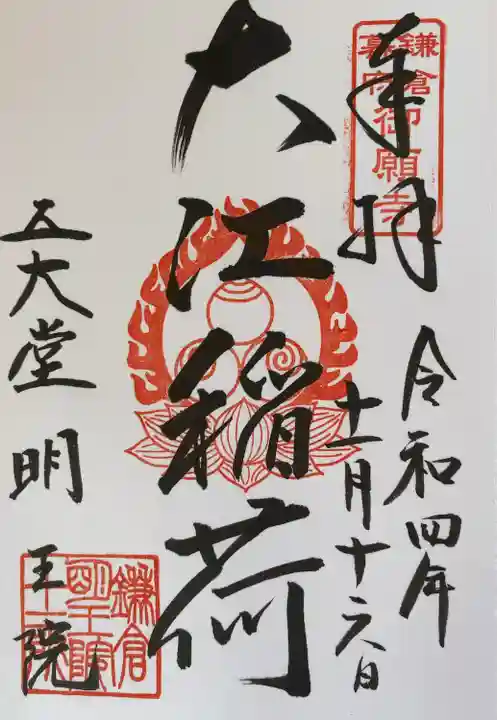 奉拝
鎌倉
幕府
御願寺
令和四年
十一月十六日
大江稲荷
五大堂 明王院
鎌倉
明王院